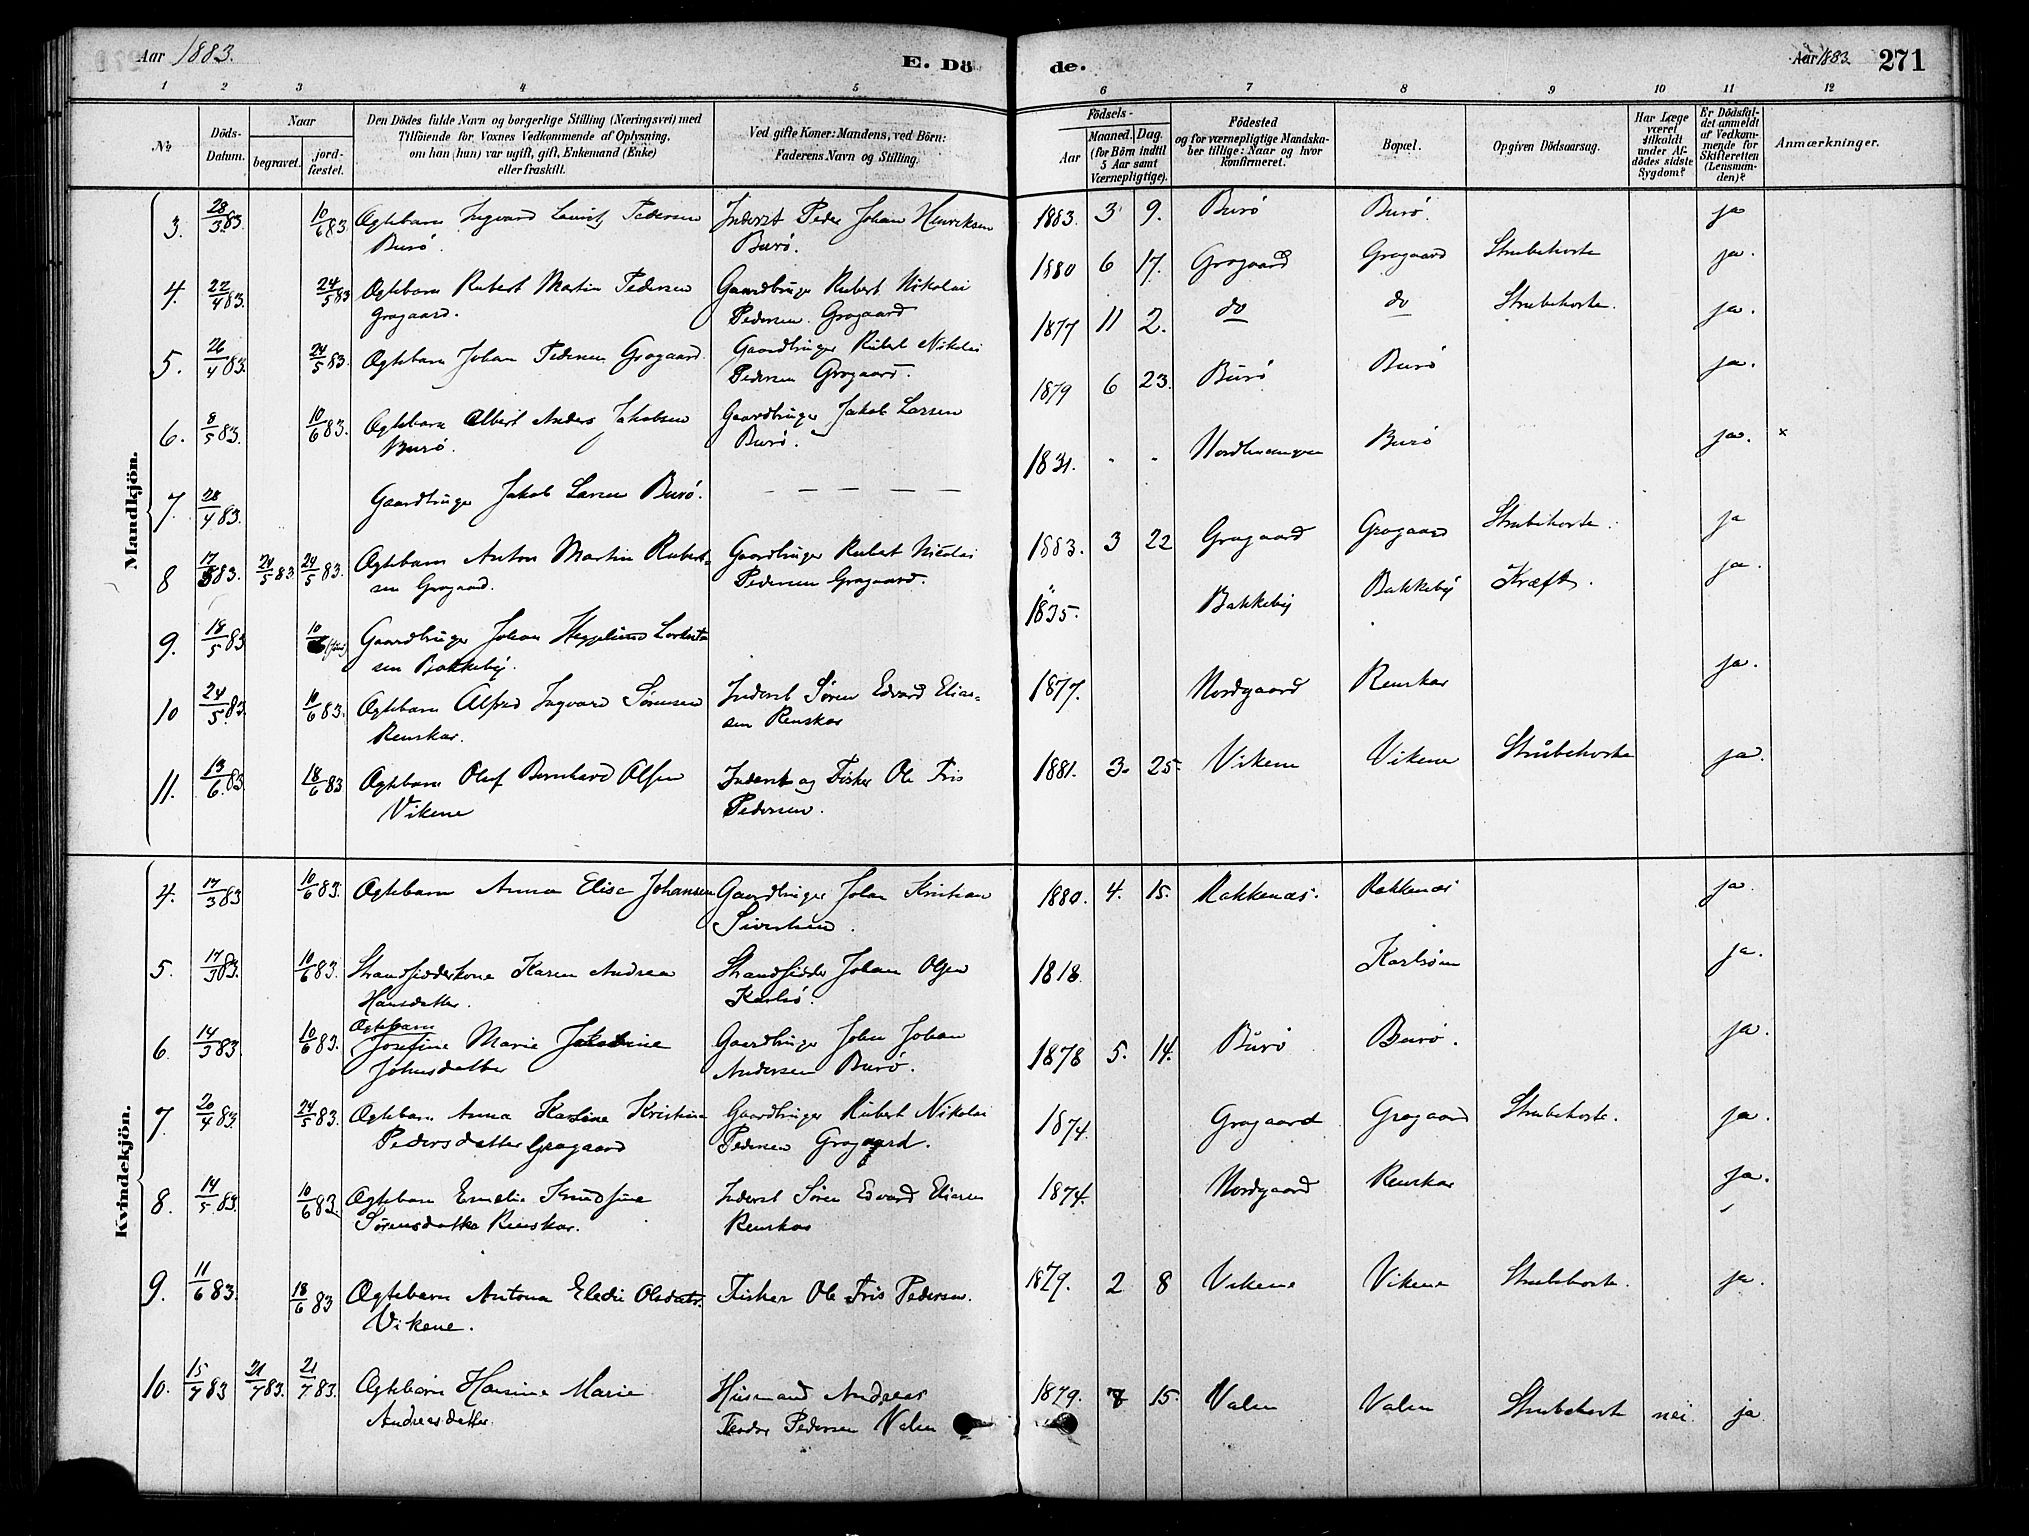 Aar 1883. E. Dö de. Aar 1883. 271
1 2 3 4 5 6 7 8 9 10 11 12
No.
Döds-
Datum.
Naar
begravet.
jord-
fæstet.
Den Dödes fulde Navn og borgerlige Stilling (Næringsvei) med
Tilföiende for Voxnes Vedkommende af Oplysning,
om han (hun) var ugift, gift, Enkemand (Enke)
eller fraskilt.
Ved gifte Koner: Mandens, ved Börn:
Faderens Navn og Stilling.
Födsels-
Aar
Maaned.
Dag.
(for Börn indtil
5 Aar samt
Værnepligtige).
Födested
og for værnepligtige Mandska-
ber tillige: Naar og hvor
konfirmeret.
Bopæl.
Opgiven Dödsaarsag.
Har Læge
været
tilkaldt
under Af-
dödes sidste
Sygdom?
Er Dödsfal-
det anmeldt
af Vedkom-
mende for
Skifteretten
(Lensman-
den)?
Anmærkninger.
Mandkjön.
3. 28/3 83. 10/6 83. Ægtebarn Ingvard Lauritz Pedersen Inderst Peder Johan Henriksen 1883. 3 9. Burö Burö. ja
Burö. Burö.
4. 22/4 83. 24/5 83 Ægtebarn Rubert Martin Pedersen Gaardbruger Rubert Nikolai 1880 6 17. Grogaard Grogaard Strubehoste ja.
Grogaard. Pedersen Grogaard
5. 26/4 83. 24/5 83. Ægtebarn Johan Pedersen Grogaard. Gaardbruger Rubert Nikolai 1877 11 2. do do Strubehoste. ja.
Pedersen Grogaard.
6. 8/5 83. 10/6 83. Ægtebarn Albert Anders Jakobsen Gaardbruger Jakob Larsen 1879 6 23. Burö Burö ja.
Burö. Burö.
7. 28/4 83. Gaardbruger Jakob Larsen Burö. — — — — 1831. " " Burö ja. x
8 17/5 83. 24/5 83. 24/5 83. Ægtebarn Anton Martin Rubert- Gaardbruger Rubert Nicolai 1883. 3 22 Grogaard Grogaard Strubehoste. ja
sen Grogaard. Pedersen Grogaard.
9. 18/5 83 10/6 Gaardbruger Johan Bakkeby. 1835. Bakkeby Bakkeby Kræft. ja.
10 24/5 83. 10/6 83. Ægtebarn Alfred Ingvard Sörensen Inderst Sören Edvard Elias- 1877. Nordgaard Renskar ja.
Renskar. sen Renskar
11. 13/6 83. 18/6 83 Ægtebarn Oluf Bernhard Olsen Inderst og Fisker Ole Fris 1881. 3. 25. Vikene Vikene Strubehoste ja.
Vikene Pedersen.
Kvindekjön.
4. 17/3 83 10/6 83. Ægtebarn Anna Elisa Johansen Gaardbruger Johan Kristian 1880. 4. 15. Rakkenæs. Rakkenæs ja.
Sivertsen.
5. 17/3 83. 10/6 83. Strandsidderkone Karen Andrea Strandsidder Johan Olsen 1818. Karlsöen ja.
Hansdatter. Karlsö.
6. 14/3 83. 10/6 83. Ægtebarn
Josefine Marie Jakobine Gaardbruger John Johan 1878 5. 14. Burö Burö. ja.
Johnsdatter Andersen Burö.
7. 20/4 83. 24/5 83. Ægtebarn Anna Karline Kristina Gaardbruger Rubert Nikolai 1874. Grogaard Grogaard Strubehoste. ja.
Pedersdatter Grogaard Pedersen Grogaard.
8. 14/5 83. 10/6 83. Ægtebarn Emelie Knudsine Inderst Sören Edvard Eliasen 1874. Nordgaard Renskar ja.
Sörensdatter Renskar. Renskar
9. 11/6 83. 18/6 83 Ægtebarn Antona Eledie Olsdatr. Fisker Ole Fris Pedersen. 1879. 2 8 Vikene Vikene Strubehoste. ja.
Vikene.
10. 15/7 83 21/7 83. 21/7 83. Ægtebarn Hansine Marie Husmand Andreas 1879. 7 15. Valen Valen Strubehoste nei. ja
Andreasdatter. Teodor Pedersen Valen